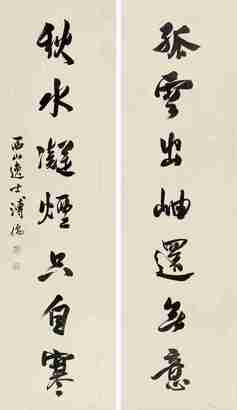 孤雲出岫還無意
秋水凝煙只自寒
西山逸士溥儒